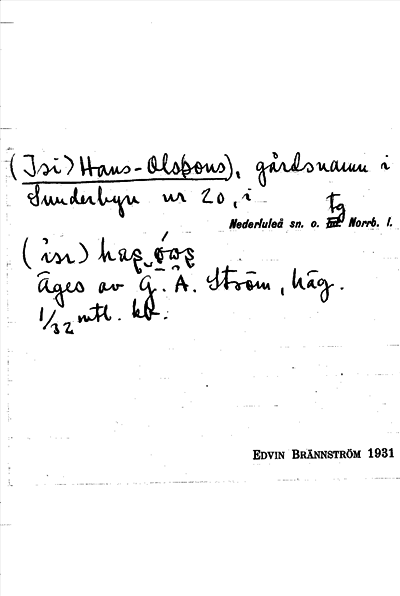 (Isi) Hans-Olsþons), gårdsnamn i
Sunderbyn nr 20, i
tg
Nederluleå sn. o. Norrb. l.
Äges av G. A. Ström, häg.
1/32 mtl. kr.
EDVIN BRÄNNSTRÖM 1931